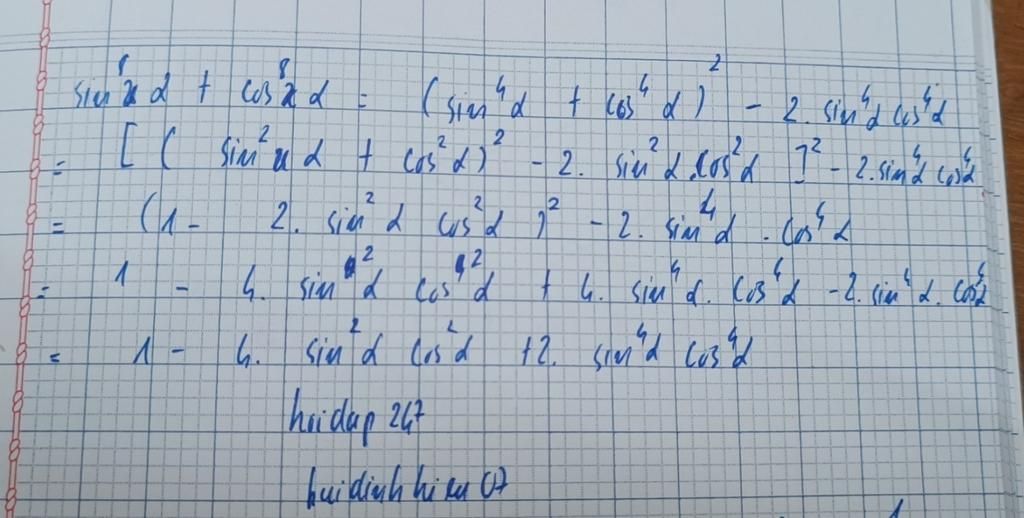 sin⁸α + cos⁸α = (sin⁴α + cos⁴α)² - 2. sin⁴α cos⁴α
= [( sin²α + cos²α)² - 2. sin²α.cos²α ]² - 2.sin⁴α cos⁴α
= (1 - 2. sin²α cos²α )² - 2. sin⁴α . cos⁴α
= 1 - 4. sin²α cos²α + 4. sin⁴α. cos⁴α - 2. sin⁴α. cos⁴α
= 1 - 4. sin²α cos²α + 2. sin⁴α cos⁴α
hoidap 247
buidinhhieu 07